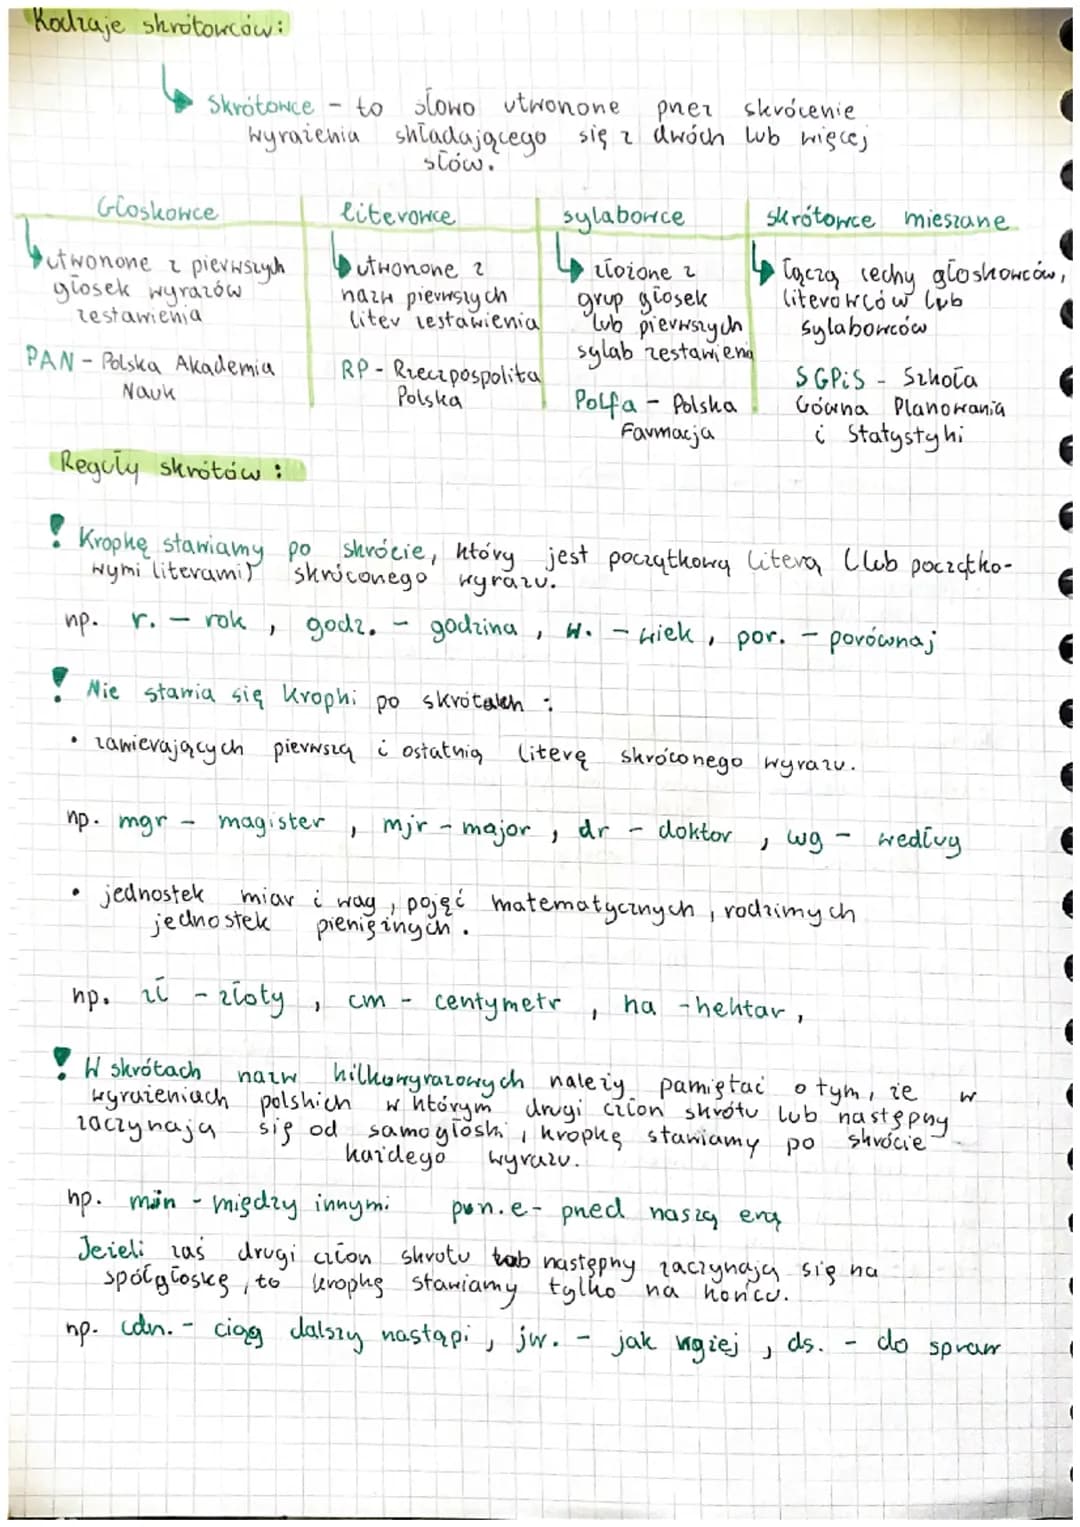 Rodzaje skrótowców:
Skrótowce - to słowo utworzone przez skrócenie
wyrażenia składającego się z dwóch lub więcej
słów.
Głoskowce
utworzone z pierwszych
głosek wyrazów
zestawienia
PAN - Polska Akademia
Nauk
literowce
utworzone z
nazw pierwszych
liter zestawienia
RP - Rzeczpospolita
Polska
sylabowce
złożone z
grup głosek
lub pierwszych
sylab zestawiena
Polfa - Polska
Farmacja
skrótowce mieszane
łączą cechy głoskowców,
literowców lub
sylabowców
SGPiS - Szkoła
Główna Planowania
i Statystyki
Reguły skrótów:
! Kropkę stawiamy po skrócie, który jest początkową literą (lub początko-
wymi literami) skróconego wyrazu.
np. r. - rok, godz. - godzina, w. - wiek, por. - porównaj
! Nie stawia się kropki po skrótach:
• zawierających pierwszą i ostatnią literę skróconego wyrazu.
np. mgr - magister, mjr - major, dr - doktor, wg - według
• jednostek miar i wag, pojęć matematycznych, rodzimych
jednostek pieniężnych.
np. zł - złoty, cm - centymetr, ha - hektar,
! W skrótach nazw kilkuwyrazowych należy pamiętać o tym, że w
wyrażeniach polskich w którym drugi człon skrótu lub następny
zaczynają się od samogłoski, kropkę stawiamy po skrócie
każdego wyrazu.
np. min - między innymi p.n.e - przed naszą erą
Jeżeli zaś drugi człon skrótu lub następny zaczynają się na
spółgłoskę, to kropkę stawiamy tylko na końcu.
np. cdn. - ciąg dalszy nastąpi, jw. - jak wyżej, ds. - do spraw